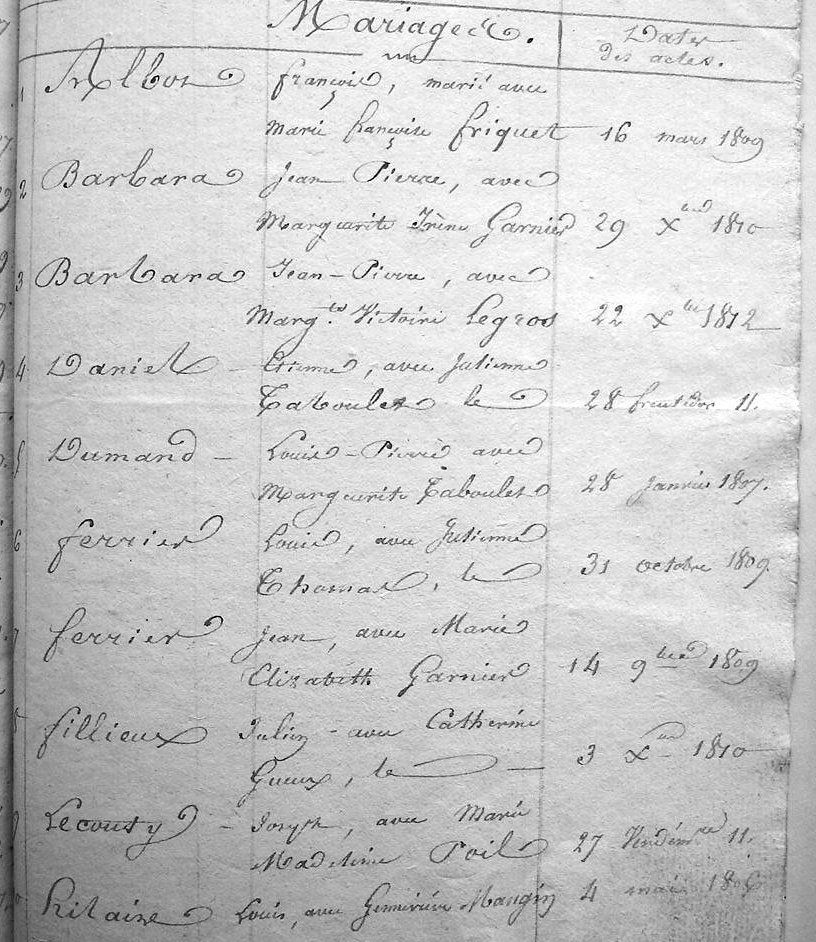 Mariages.
Dates
des actes.
1 Albot François, marié avec
Marie françoise friquet 16 mars 1809
2 Barbara Jean Pierre, avec
Marguerite Irène Garnier 29 Xbre 1810
3 Barbara Jean-Pierre, avec
Marg.te Victoire Legros 22 Xbre 1812
4 Daniel - Etienne, avec Julienne
Taboulet le 28 fructidor 11.
5 Dumand - Louis-Pierre avec
Marguerite Taboulet 28 Janvier 1807.
6 ferrier Louis, avec Julienne
Thomas, le 31 octobre 1809.
7 ferrier Jean, avec Marie
Elizabeth Garnier 14 9bre 1809
fillieux Julien - avec Catherine
Gueux, le - 3 Xbre 1810
Lecousty - Joseph, avec Marie
Madeleine Poil 27 Vendém.re 11.
hilaire Louis, avec Genneviève Maugin 4 mai